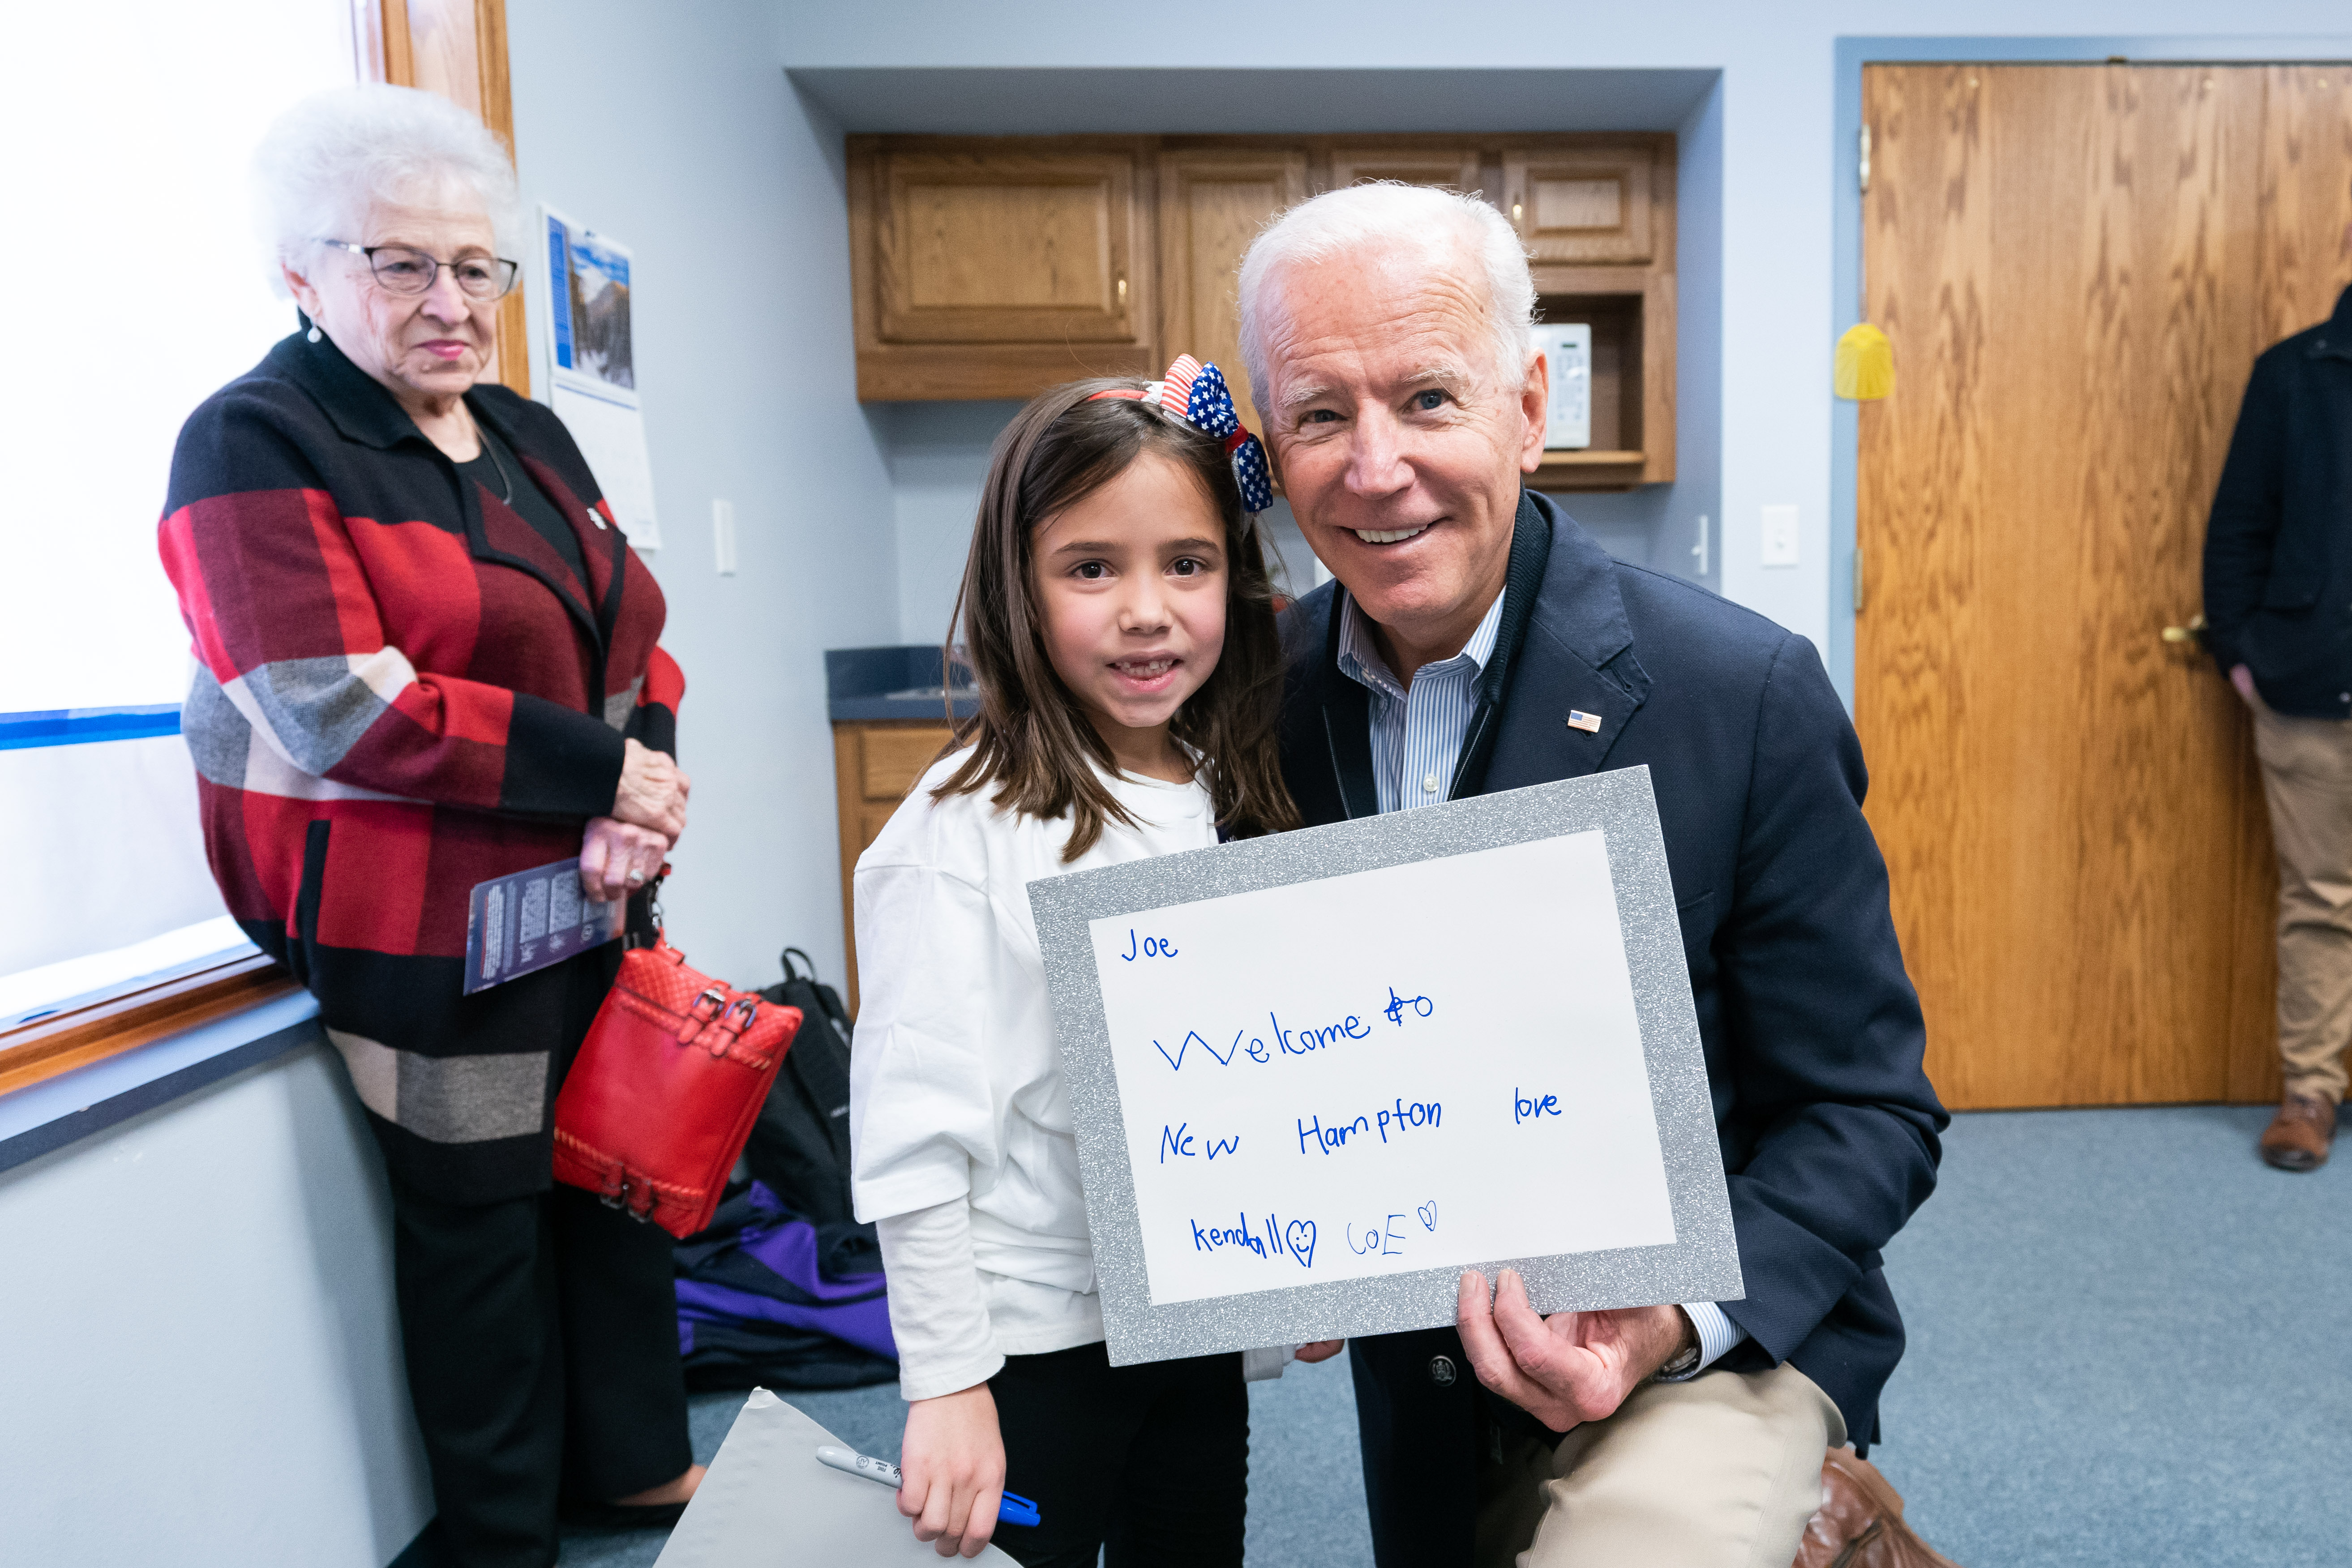 Joe
Welcome to
New Hampton love
kendall CoE